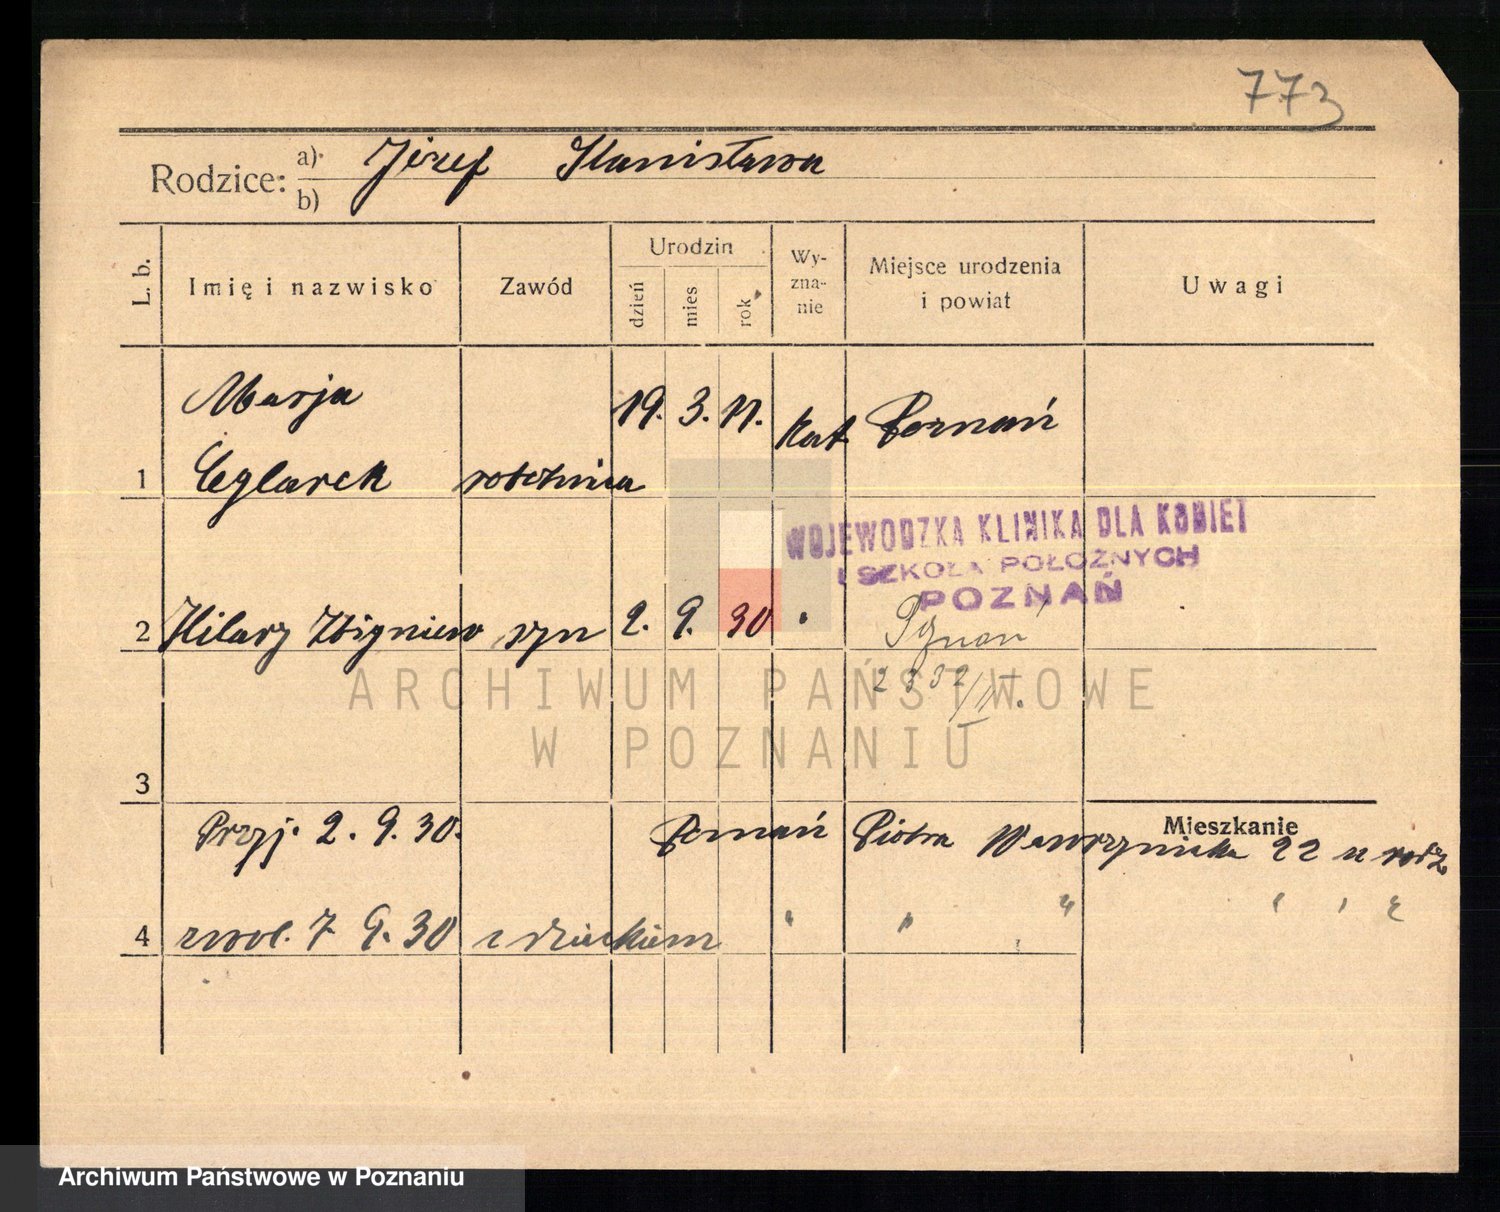 773
Rodzice: a) Józef Stanisława
b)
L. b. Imię i nazwisko Zawód Urodzin dzień mies rok Wy-zna-nie Miejsce urodzenia i powiat Uwagi
Marja 19. 3. 11. kat. Poznań
1 Cglarek robotnica
WOJEWODZKA KLINIKA DLA KOBIET
I SZKOŁA POŁOŻNYCH
POZNAŃ
2 Hilary Zbigniew syn 2. 9. 30 "
Poznań
2332/II.
ARCHIWUM PAŃSTWOWE
W POZNANIU
3
Mieszkanie
Przyj. 2. 9. 30. Poznań Piotra Wawrzyniaka 22 u rodz
4 zwol. 7 9. 30 z dzieckiem " " " " " "
Archiwum Państwowe w Poznaniu